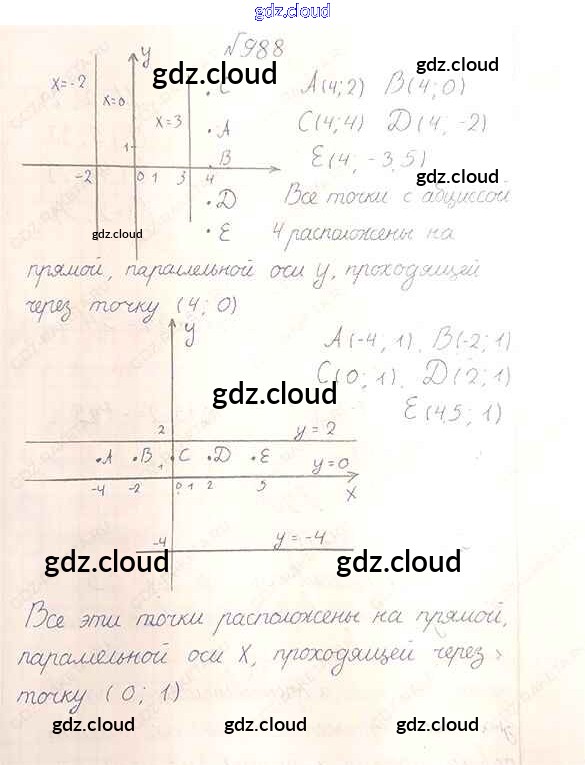 gdz.cloud
№988
y
x=-2
gdz.cloud
C
A(4; 2) B(4; 0)
gdz.cloud
x=0
x=3
A
C(4; 4) D(4, -2)
1
B
E(4, -3,5)
-2 0 1 3 4
gdz.cloud
D
Все точки с абциссой
gdz.cloud
E
4 расположены на
прямой, параллельной оси y, проходящей
через точку (4; 0)
y
A(-4; 1), B(-2; 1)
C(0; 1), D(2; 1)
gdz.cloud
E(4,5; 1)
2
y=2
A B C D E
1
y=0
-4 -2 0 1 2 5 x
-4
y=-4
gdz.cloud gdz.cloud
Все эти точки расположены на прямой,
параллельной оси X, проходящей через
точку (0; 1)
gdz.cloud gdz.cloud gdz.cloud